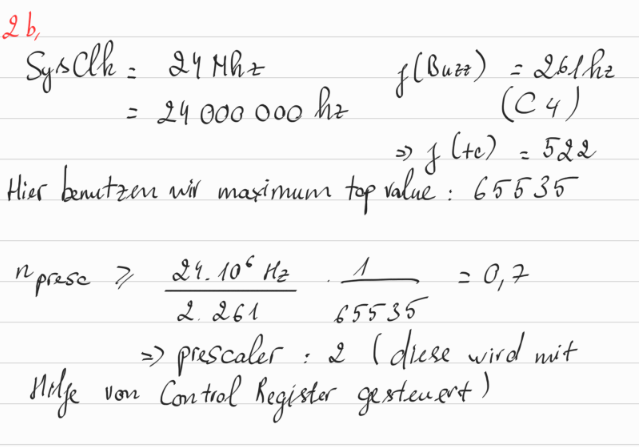 2b,
SysClk = 24 Mhz f(Buzz) = 261hz
= 24 000 000 hz (C4)
=> f(tc) = 522
Hier benutzen wir maximum top value : 65535
n presc ≥ 24.10⁶ Hz / 2.261 · 1 / 65535 = 0,7
=> prescaler : 2 (diese wird mit
Hilfe von Control Register gesteuert)